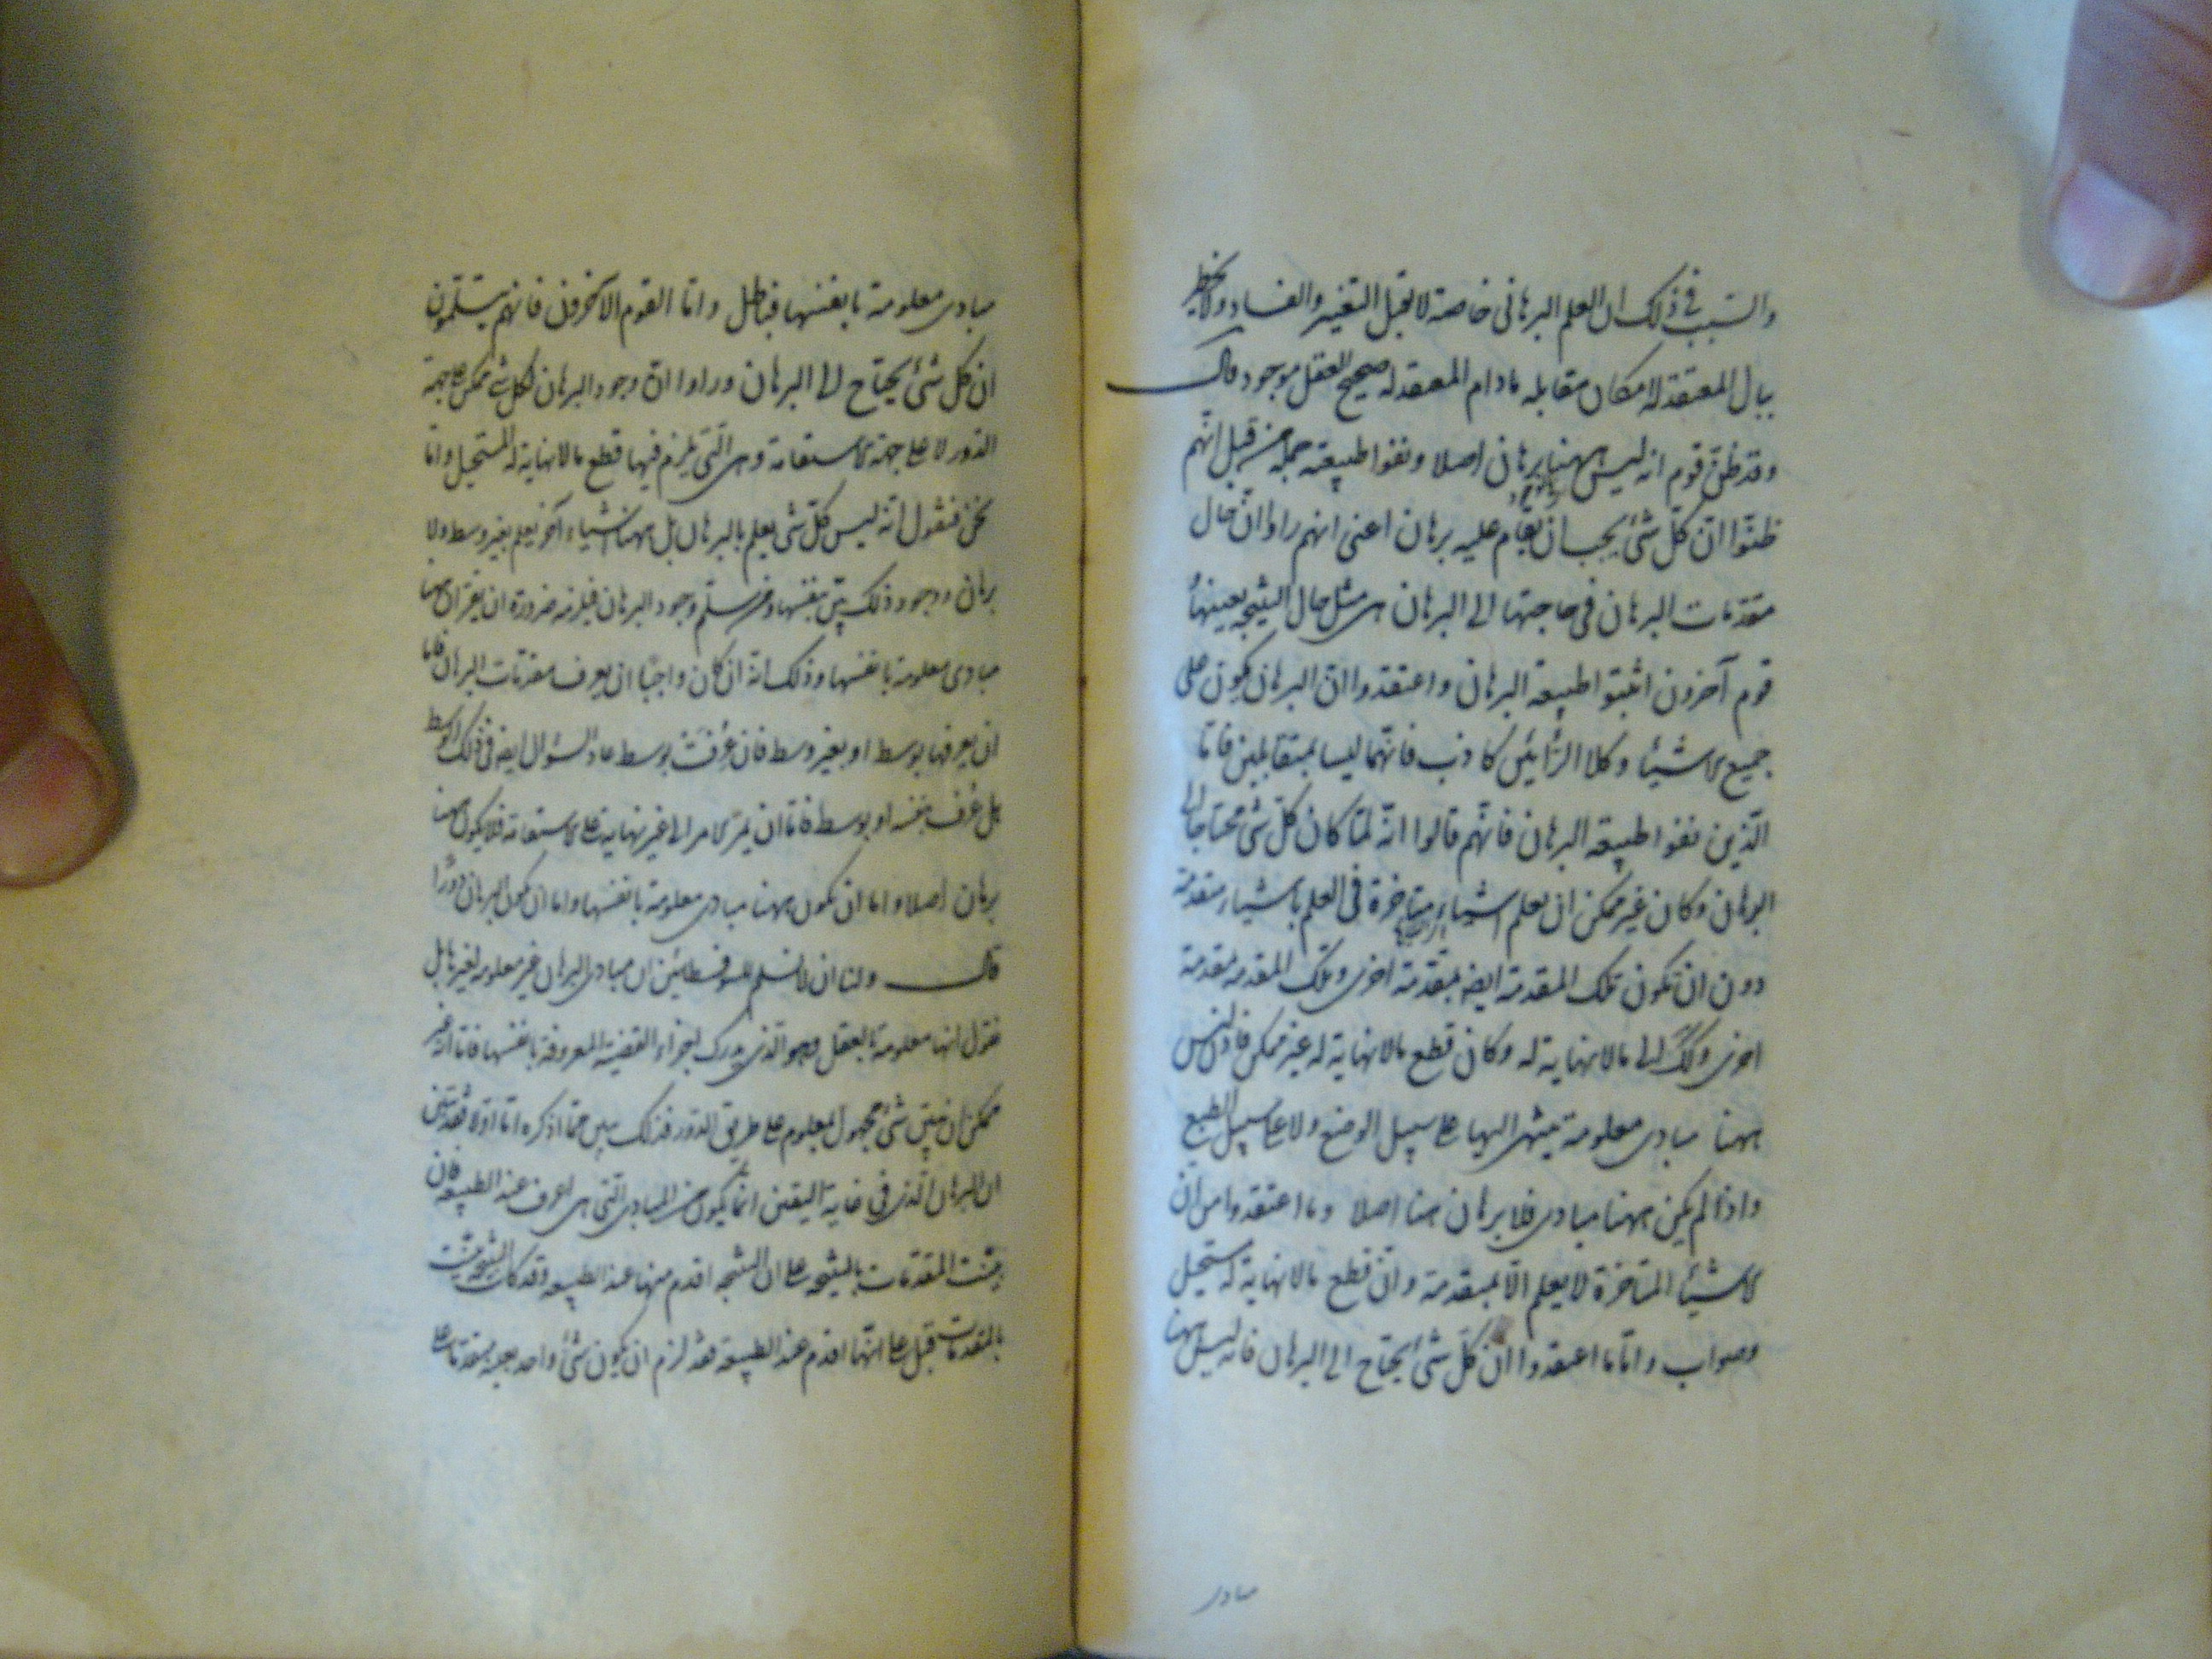 والسبب في ذلك ان العلم البرهاني خاصة لا يقبل التغير والفساد ولا يخطر
ببال المعتقد له امكان مقابله مادام المعتقد له صحيح العقل موجود قال
وقد ظن قوم انه ليس ههنا برهان اصلا ونفوا طبيعته جملة من قبل انهم
ظنوا ان كل شئ يجب ان يقام عليه برهان اعنى انهم راوا ان حال
مقدمات البرهان فى حاجتها الى البرهان هى مثل حال النتيجه بعينها
قوم آخرون اثبتوا طبيعة البرهان واعتقدوا ان البرهان يكون على
جميع الاشياء وكلا الرأيين كاذب فانهما ليسا بمتقابلين فاما
الذين نفوا طبيعة البرهان فانهم قالوا انه لما كان كل شئ محتاجا الى
البرهان وكان غير ممكن ان يعلم اشياء متاخرة فى العلم باشياء متقدمة
دون ان تكون تلك المقدمة ايضا بمتقدمة اخرى وتلك المقدمه بمقدمة
اخرى وكك الى مالانهاية له وكان قطع مالانهاية له غير ممكن فاذن ليس
ههنا مبادى معلومة ينتهى اليها على سبيل الوضع ولا على سبيل الطبع
واذا لم يكن ههنا مبادى فلا برهان هنا اصلا وما اعتقدوا من ان
الاشياء المتاخرة لا يعلم الا بمتقدمة وان قطع مالانهاية له مستحيل
وصواب واما ما اعتقدوا ان كل شئ يحتاج الى البرهان فانه ليس ههنا
مبادى
مبادى معلومة بانفسها فباطل واما القوم الآخرون فانهم يسلمون
ان كل شئ يحتاج الى البرهان وراوا ان وجود البرهان لكل شئ ممكن على جهة
الدور لا على جهة الاستقامة وهى التى يلزم فيها قطع مالانهاية له المستحيل واما
نحن فنقول انه ليس كل شئ يعلم بالبرهان بل ههنا اشياء آخر يعلم بغير وسط ولا
برهان ووجود ذلك بين بنفسها ومن سلم وجود البرهان فيلزمه ضرورة ان يقر ان ههنا
مبادى معلومة بانفسها وذلك انه ان كان واجبا ان يعرف مقدمات البرهان فاما
ان يعرفها بوسط او بغير وسط فان عرفت بوسط عاد السؤال ايضا فى ذلك الوسط
هل عرف بنفسه او بوسط فاما ان يمر الامر الى غير نهاية على الاستقامة فلا يكون ههنا
برهان اصلا واما ان تكون ههنا مبادى معلومة بانفسها واما ان يكون البرهان دورا
قال ولنا ان لا نسلم للسوفسطائين ان مبادى البرهان غير معلومة لغيرها بل
نقول انها معلومة بالعقل وهو الذى يدرك اجزاء القضية المعروفة بانفسها فاما انه غير
ممكن ان يتبين شئ مجهول لمعلوم على طريق الدور فذلك يبين مما اذكره اما اولا فقد تبين
ان البرهان الذى فى غاية اليقين انما يكون من المبادى التى هى اعرف عند الطبيعة فان
بينت المقدمات بالنتيجه على ان النتيجه اقدم منها عند الطبيعه وقد كانت النتيجه بينت
بالمقدمات قبل على انها اقدم عند الطبيعة فقد لزم ان يكون شئ واحد بعينه متقدما على